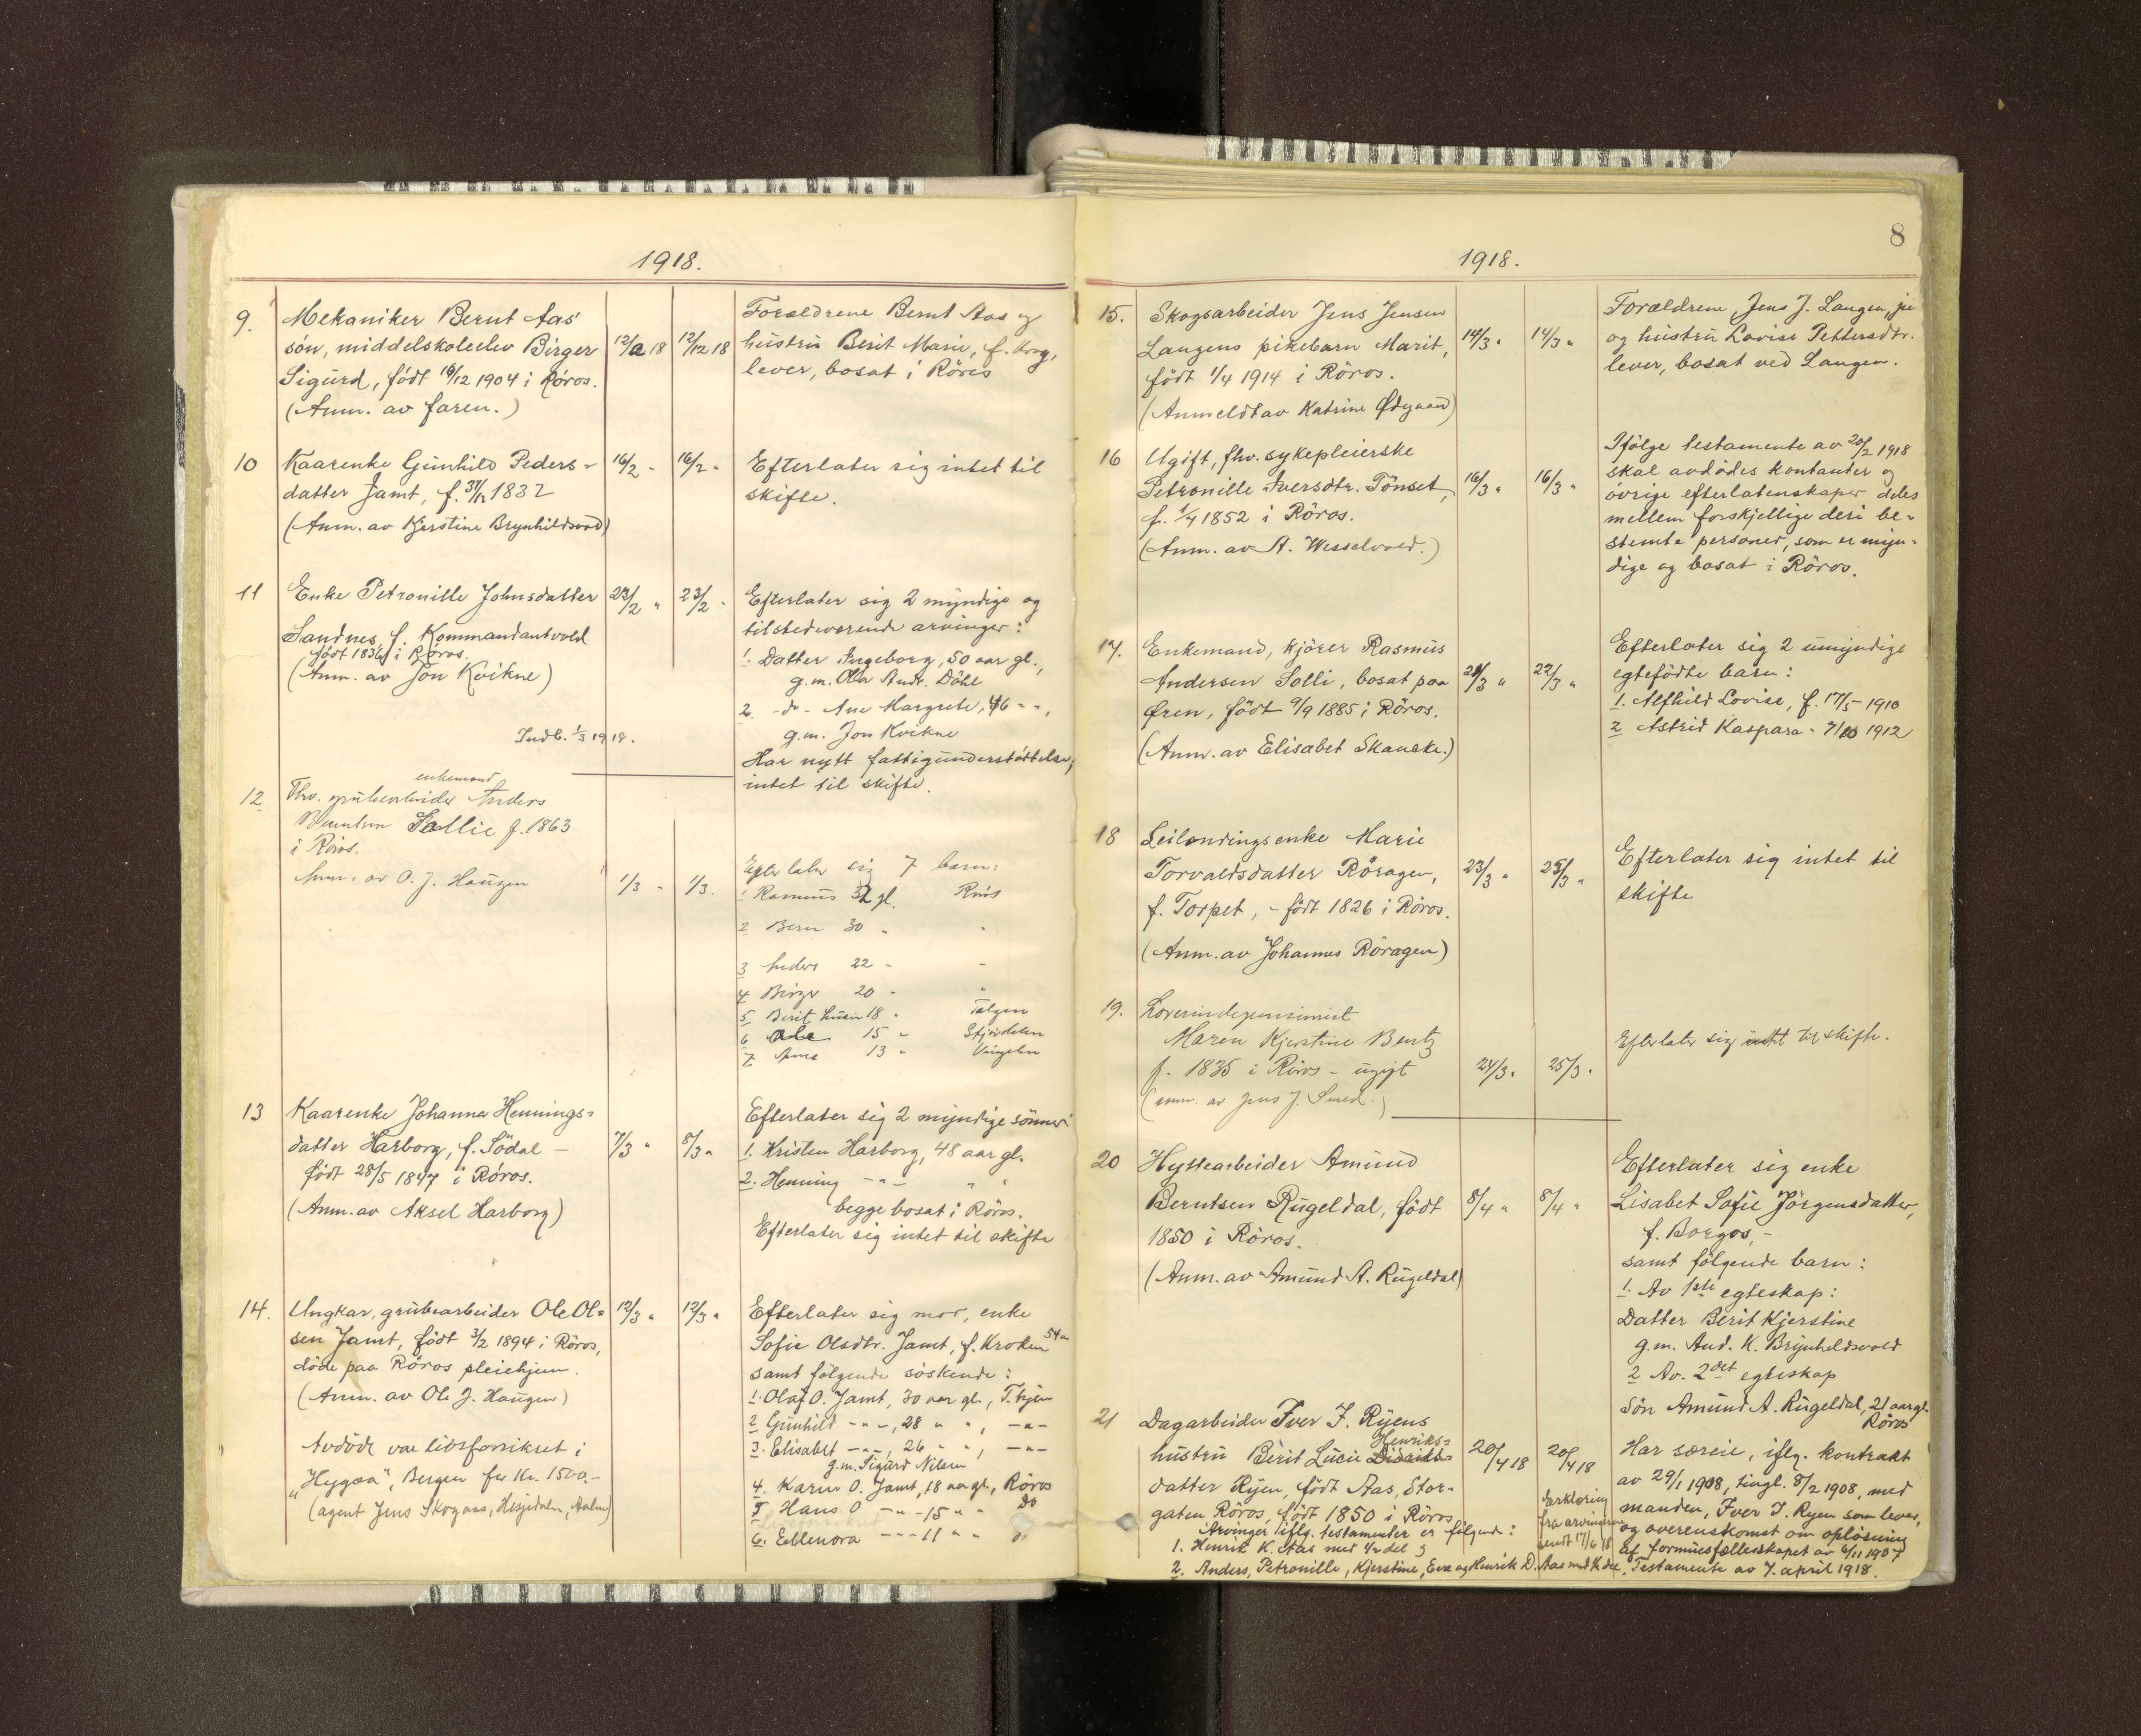 1918.
9. Mekaniker Bernt Aas'
søn, middelskoleelev Birger
Sigurd, født 16/12 1904 i Røros.
(Anm. av faren.)
12/2 18
12/12 18
Forældrene Bernt Aas og
hustru Berit Marie, f. Krog,
lever, bosat i Røros
10 Kaarenke Gunhild Peders-
datter Jamt, f. 31/12 1832
(Anm. av Kjerstine Brynhildsvold)
16/2 "
16/2 "
Efterlater sig intet til
skifte.
11 Enke Petronille Johnsdatter
Sandnes, f. Kommandantvold
født 1836 i Røros.
(Anm. av Jon Kvikne)
23/2 "
23/2 "
Efterlater sig 2 myndige og
tilstedeværende arvinger:
1. Datter Ingeborg, 50 aar gl.,
g.m. Ola Andr. Døhl
2. -d- Ane Margrete, 46 - -,
g.m. Jon Kvikne
Har nytt fattigunderstøttelse;
intet til skifte.
Indb. 1/3 1918.
12 Fhv. grubearbeider enkemand Anders
Berntsen Sollie f. 1863
i Røros.
Anm. av O. J. Haugen
1/3 "
1/3.
Efterlater sig 7 barn:
1 Rasmus 32 gl. Røros
2 Bern 30 " "
3 Anders 22 - -
4 Birger 20 - "
5 Berit 18 " Tolgen
6 Ole 15 " Stjørdalen
7. Anna 13 " Vingelen
13 Kaarenke Johanna Hennings-
datter Harborg, f. Sødal -
født 28/5 1847 i Røros.
(Anm. av Aksel Harborg)
7/3 "
8/3 "
Efterlater sig 2 myndige sønner:
1. Kristen Harborg, 48 aar gl.
2. Henning -"- " "
begge bosat i Røros.
Efterlater sig intet til skifte
14. Ungkar, grubearbeider Ole Ol-
sen Jamt, født 3/2 1894 i Røros,
døde paa Røros pleiehjem.
(Anm. av Ole J. Haugen)
Avdøde var livsforsikret i
"Hygea", Bergen for Kr. 1500.-
(agent Jens Skogaas, Hessdalen, Aalen)
12/3 "
12/3 "
Efterlater sig mor, enke
Sofie Olsdtr. Jamt, f. Kroken 54 "
samt følgende søskende:
1. Olaf O. Jamt, 30 aar gl.,
2 Gunhild -"-, 28 " ", -"-
3. Elisabet -"-, 26 " ", -"-
g.m. Sigurd Nilsen
4. Karen O. Jamt, 18 aar gl., Røros
5. Hans O -"- 15 " " do
6. Ellenora -"- 11 " " do
8
1918.
15. Skogsarbeider Jens Jensen
Langens pikebarn Marit,
født 1/4 1914 i Røros.
(Anmeldt av Katrine Ødegaard)
14/3 "
14/3 "
Forældrene, Jens J. Langen, jr.
og hustru Lovise Pettersdtr.
lever, bosat ved Langen.
16 Ugift, fhv. sykepleierske
Petronille Iversdtr. Tønset,
f. 1/4 1852 i Røros.
(Anm. av A. Wesselvold.)
16/3 "
16/3 "
Ifølge testamente av 20/2 1918
skal avdødes kontanter og
øvrige efterlatenskaper deles
mellem forskjellige deri be-
stemte personer, som er myn-
dige og bosat i Røros.
17. Enkemand, kjører Rasmus
Andersen Solli, bosat paa
Øren, født 9/9 1885 i Røros.
(Anm. av Elisabet Skancke.)
21/3 "
22/3 "
Efterlater sig 2 umyndige
egtefødte barn:
1. Alfhild Lovise, f. 17/5 1910
2 Astrid Kaspara - 7/10 1912
18 Leilendingsenke Marie
Torvaldsdatter Røragen,
f. Torpet, - født 1826 i Røros.
(Anm. av Johannes Røragen)
23/3 "
25/3 "
Efterlater sig intet til
skifte
19.
Maren Kjerstine Bentz
f. 1835 i Røros - ugift
(anm. av Jens J. Sund.)
24/3 "
25/3 "
Efterlater sig intet til skifte.
20 Hyttearbeider Amund
Berntsen Rugeldal, født
1850 i Røros.
(Anm. av Amund A. Rugeldal)
8/4 "
8/4 "
Efterlater sig enke
Lisabet Sofie Jørgensdatter,
f. Borgos, -
samt følgende barn:
1. Av 1ste egteskap:
Datter Berit Kjerstine
g.m. And. K. Brynhildsvold
2 Av. 2det egteskap
Søn Amund A. Rugeldal, 21 aar gl.
Røros
21 Dagarbeider Iver J. Ryens
hustru Berit Lucie Henriks-
datter Ryen, født Aas, Stor-
gaten Røros, født 1850 i Røros
20/4 18
20/4 18
Har særeie, iflg. kontrakt
av 29/1 1908, tingl. 8/2 1908, med
manden, Iver J. Ryen som lever,
og overenskomst om opløsning
af formuesfællesskapet av 6/11 1907
Erklæring
fra arvingerne
sendt 17/6 18
Arvinger iflg. testamenter er følgende:
1. Henrik K. Aas med 1/2 del og
2. Anders, Petronille, Kjerstine, Eva og Henrik D. Aas med 1/2 del. Testamente av 7. april 1918.